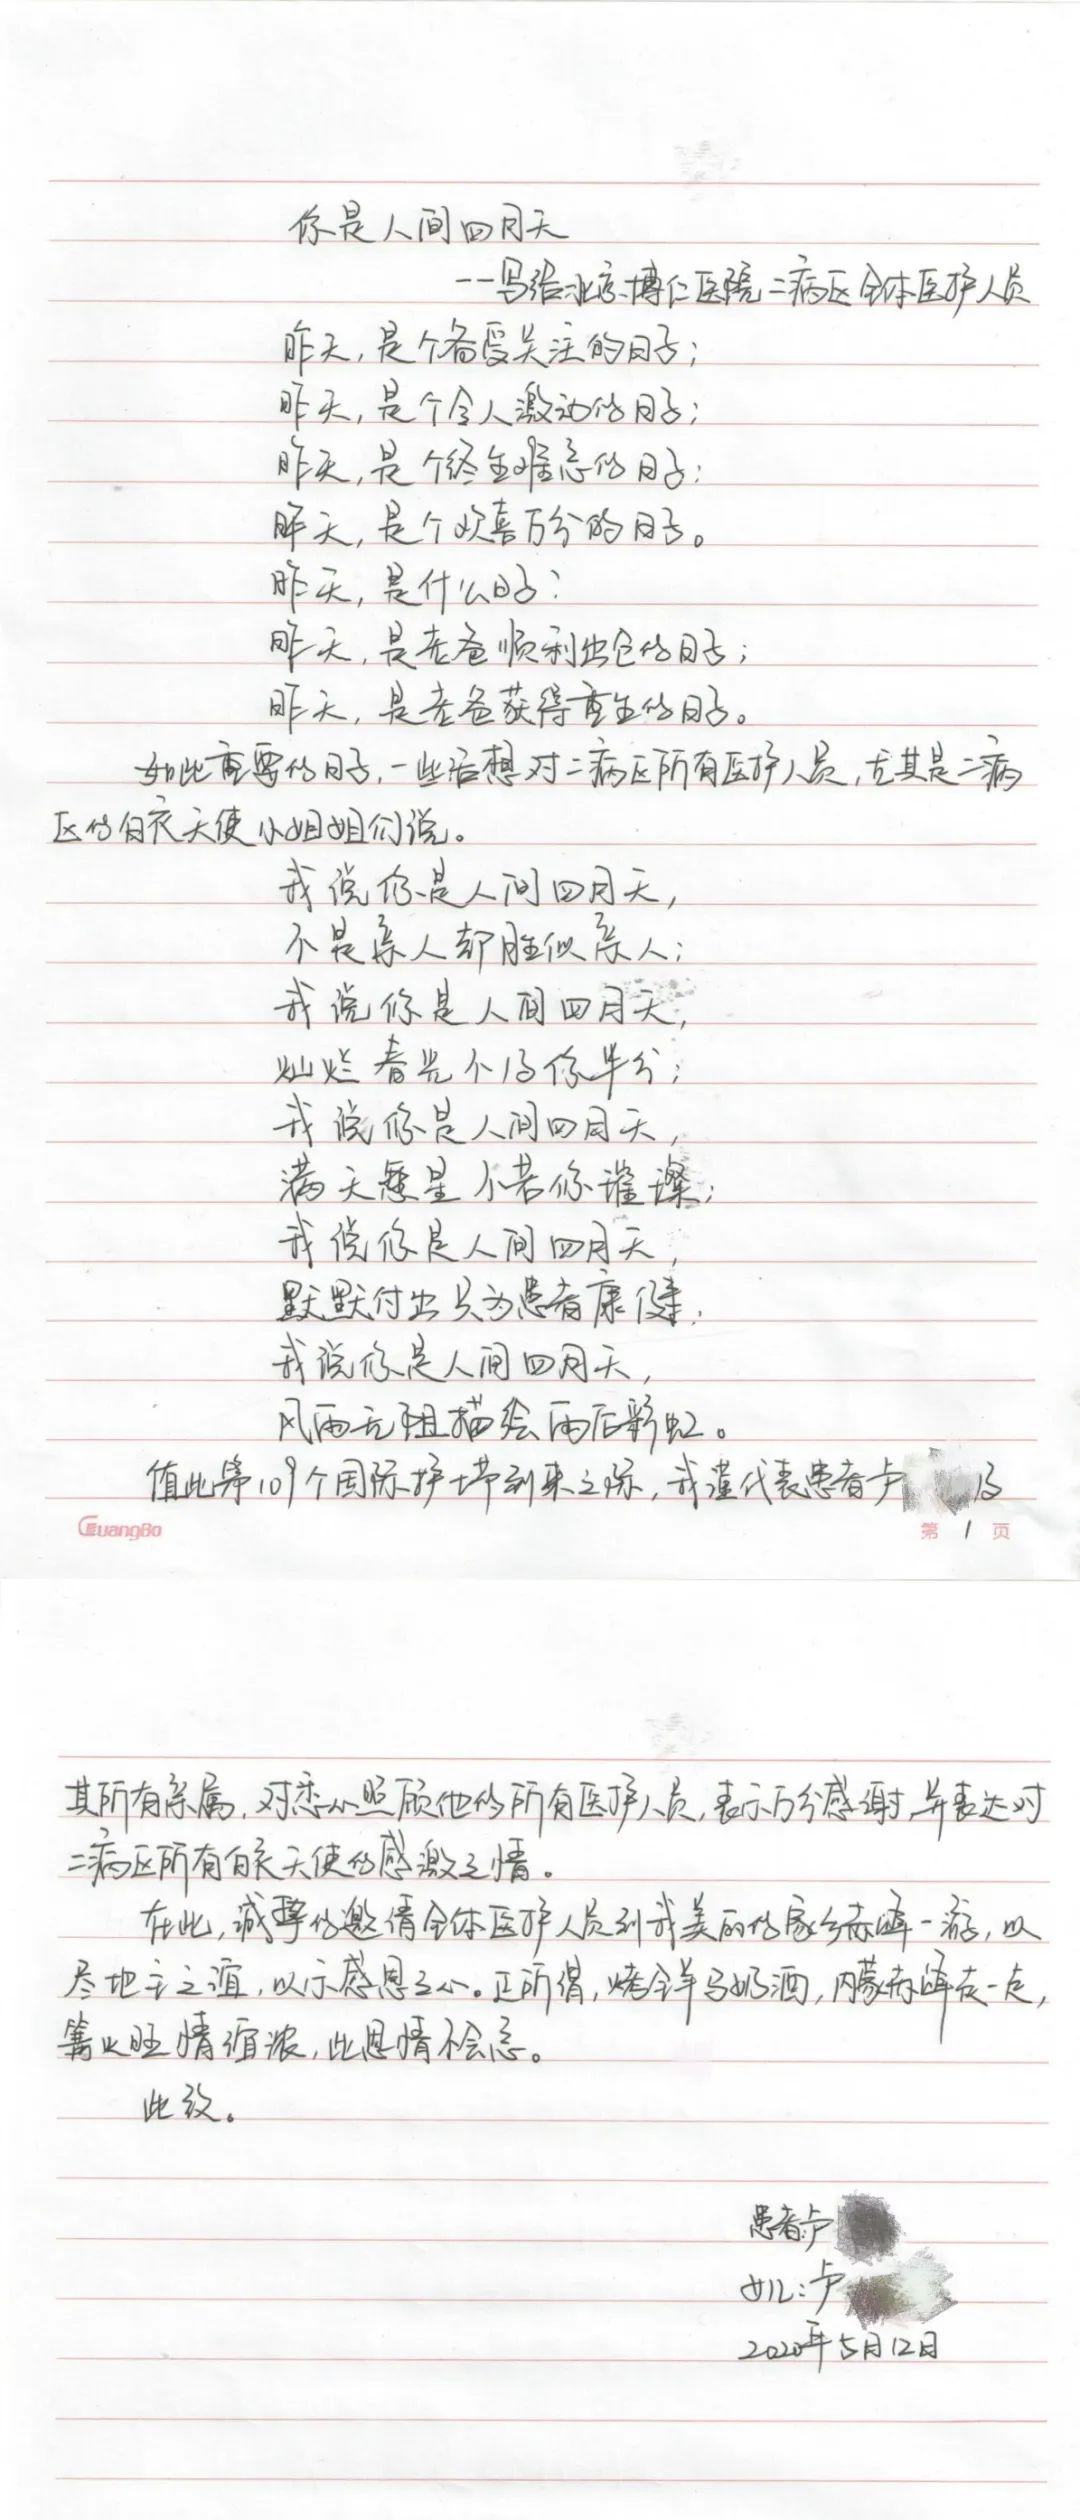 你是人间四月天
--写给北京博仁医院二病区全体医护人员
昨天,是个备受关注的日子;
昨天,是个令人激动的日子;
昨天,是个终生难忘的日子;
昨天,是个欢喜万分的日子。
昨天,是什么日子?
昨天,是老爸顺利出仓的日子;
昨天,是老爸获得重生的日子。
如此重要的日子,一些话想对二病区所有医护人员,尤其是二病
区的白衣天使小姐姐们说。
我说你是人间四月天,
不是亲人却胜似亲人;
我说你是人间四月天,
灿烂春光不及你半分;
我说你是人间四月天,
满天繁星不若你璀璨;
我说你是人间四月天,
默默付出只为患者康健,
我说你是人间四月天,
风雨无阻描绘雨后彩虹。
值此第109个国际护士节到来之际,我谨代表患者卢 及
GuangBo
第 1 页
其所有亲属,对悉心照顾他的所有医护人员,表示万分感谢,并表达对
二病区所有白衣天使的感激之情。
在此,诚挚的邀请全体医护人员到我美丽的家乡赤峰一游,以
尽地主之谊,以示感恩之心。正所谓,烤全羊马奶酒,内蒙赤峰走一走,
篝火旺情谊浓,此恩情不会忘。
此致。
患者:卢
女儿:卢
2020年5月12日